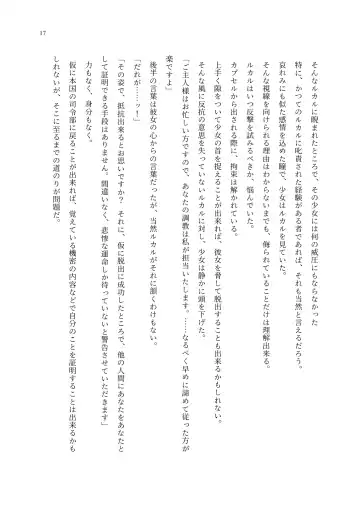 17
そんなルカルに睨まれたところで、その少女には何の威圧にもならなかった
特に、かつてのルカルに叱責された経験がある者であれば、それも当然と言えるだろう。
哀れみにも似た感情を込めた瞳で、少女はルカルを見ていた。
そんな視線を向けられる理由はわからないまでも、侮られていることだけは理解出来る。
ルカルはいつ反撃を試みるべきか、悩んでいた。
カプセルから出される際に、拘束は解かれている。
上手く隙をついて少女の首を捉えることが出来れば、彼女を脅して脱出することも出来るかもしれない。
そんな風に反抗の意思を失っていないルカルに対し、少女は静かに頭を下げた。
「ご主人様はお忙しい方ですので、あなたの調教は私が担当いたします。……なるべく早めに諦めて従った方が
楽ですよ」
後半の言葉は彼女の心からの言葉だったが、当然ルカルがそれに頷くわけもない。
「だれが……ッ！」
「その姿で、抵抗出来るとお思いですか？　それに、仮に脱出に成功したところで、他の人間にあなたをあなたと
して証明できる手段はありません。間違いなく、悲惨な運命しか待っていないと警告させていただきます」
力もなく、身分もなく。
仮に本国の司令部に戻ることが出来れば、覚えている機密の内容などで自分のことを証明することは出来るかも
しれないが、そこに至るまでの道のりが問題だ。